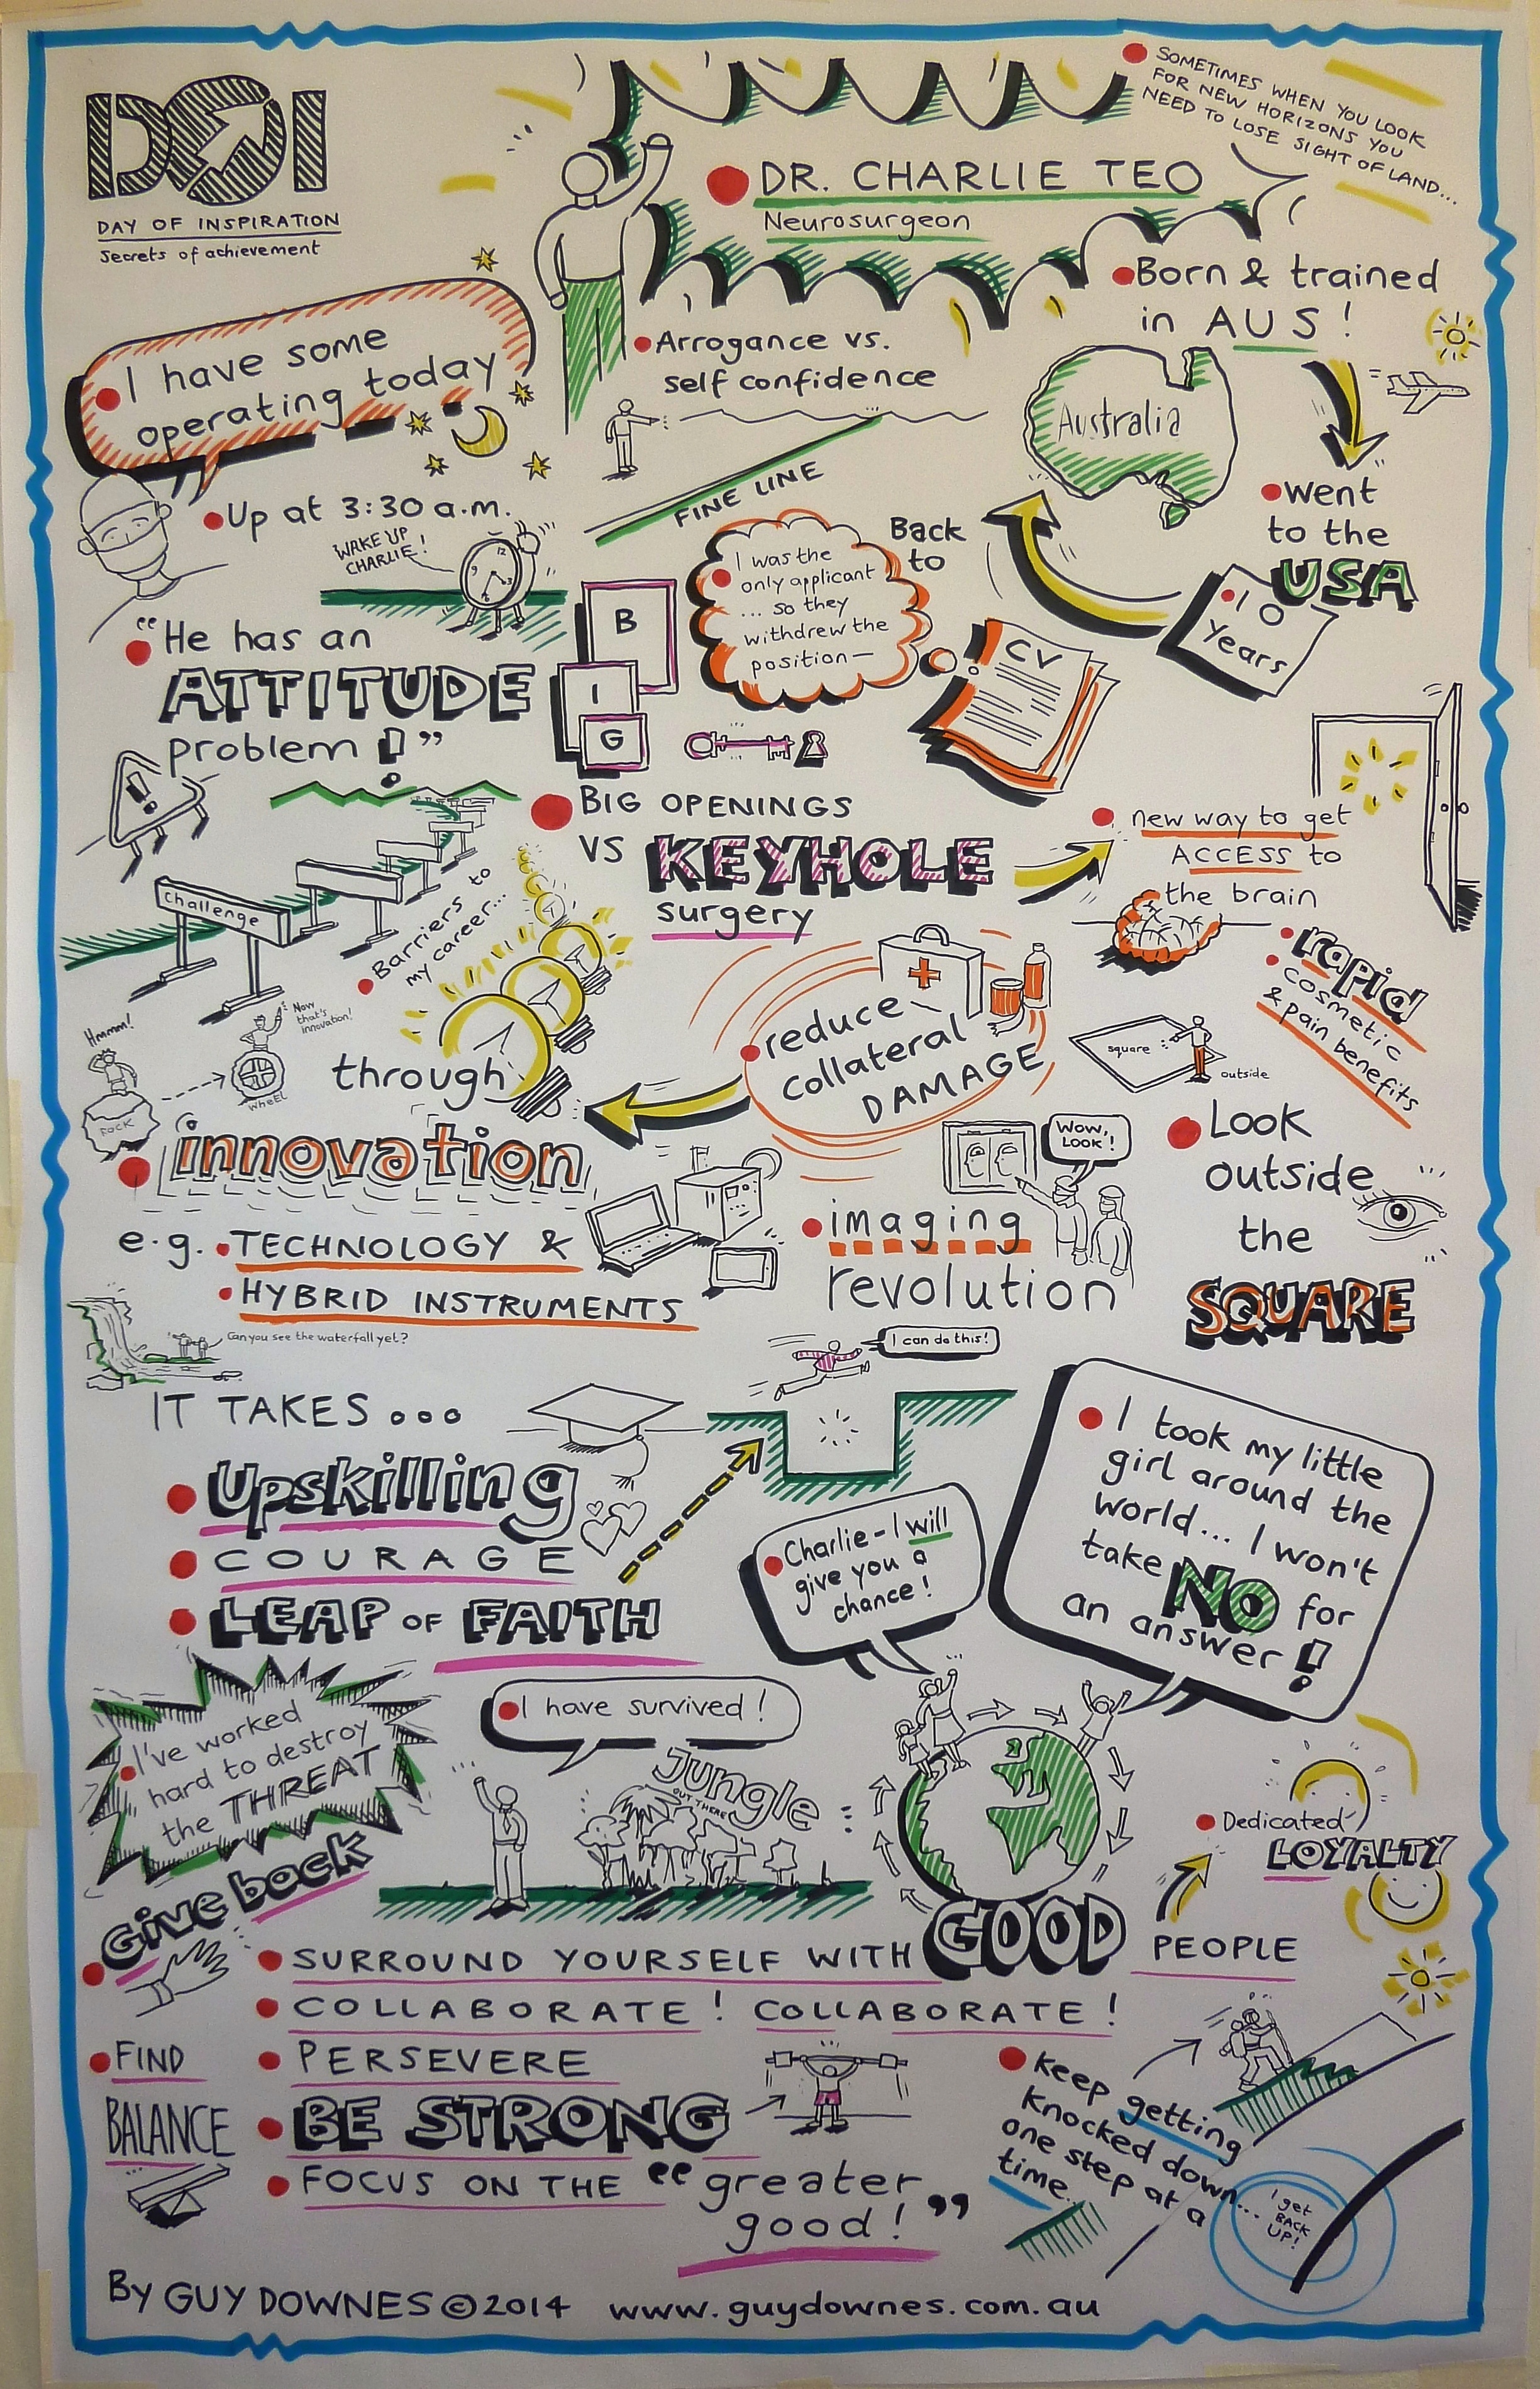 DOI
DAY OF INSPIRATION
Secrets of achievement
SOMETIMES WHEN YOU LOOK
FOR NEW HORIZONS YOU
NEED TO LOSE SIGHT OF LAND...
DR. CHARLIE TEO
Neurosurgeon
Born & trained
in AUS!
Australia
I have some
operating today
Arrogance vs.
self confidence
FINE LINE
Up at 3:30 a.m.
WAKE UP
CHARLIE!
went
to the
USA
10
years
Back
to
I was the
only applicant
... so they
withdrew the
position—
CV
"He has an
ATTITUDE
problem!"
B
I
G
BIG OPENINGS
VS KEYHOLE
surgery
new way to get
ACCESS to
the brain
rapid
cosmetic
& pain benefits
Challenge
Barriers to
my career...
Hmmm!
ROCK
Now
that's
innovation!
WHEEL
through
innovation
reduce
collateral
DAMAGE
square
outside
Look
outside
the
SQUARE
WOW,
LOOK!
imaging
revolution
e.g. TECHNOLOGY &
HYBRID INSTRUMENTS
Can you see the waterfall yet?
I can do this!
IT TAKES...
Upskilling
COURAGE
LEAP OF FAITH
Charlie - I will
give you a
chance!
I took my little
girl around the
world... I won't
take NO for
an answer!
I've worked
hard to destroy
the THREAT
I have survived!
Jungle
OUT THERE
Dedicated
LOYALTY
Give back
SURROUND YOURSELF WITH GOOD PEOPLE
COLLABORATE! COLLABORATE!
FIND
BALANCE
PERSEVERE
BE STRONG
FOCUS ON THE "greater
good!"
Keep getting
Knocked down...
one step at a
time...
I get
BACK
UP!
By GUY DOWNES © 2014 www.guydownes.com.au